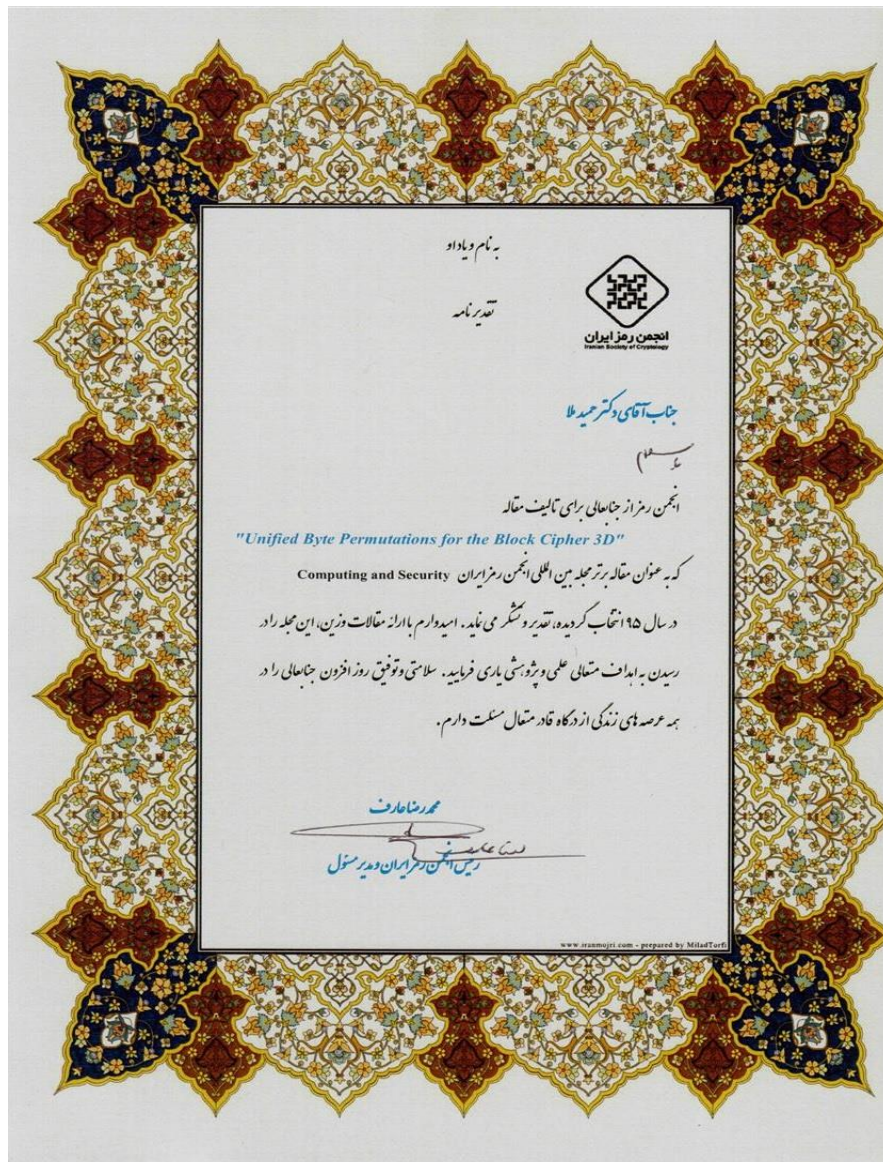 به نام و یاد او
تقدیر نامه
انجمن رمز ایران
Iranian Society of Cryptology
جناب آقای دکتر حمید ملا
با سلام
انجمن رمز از جنابعالی برای تالیف مقاله
"Unified Byte Permutations for the Block Cipher 3D"
که به عنوان مقاله برتر مجله بین المللی انجمن رمز ایران Computing and Security
در سال ۹۵ انتخاب گردیده، تقدیر و تشکر می نماید. امیدوارم با ارائه مقالات وزین، این مجله را در
رسیدن به اهداف متعالی علمی و پژوهشی یاری فرمایید. سلامتی و توفیق روز افزون جنابعالی را در
همه عرصه های زندگی از درگاه قادر متعال مسئلت دارم.
محمدرضا عارف
رئیس انجمن رمز ایران و مدیر مسئول
www.iranmojri.com - prepared by MiladTorfi